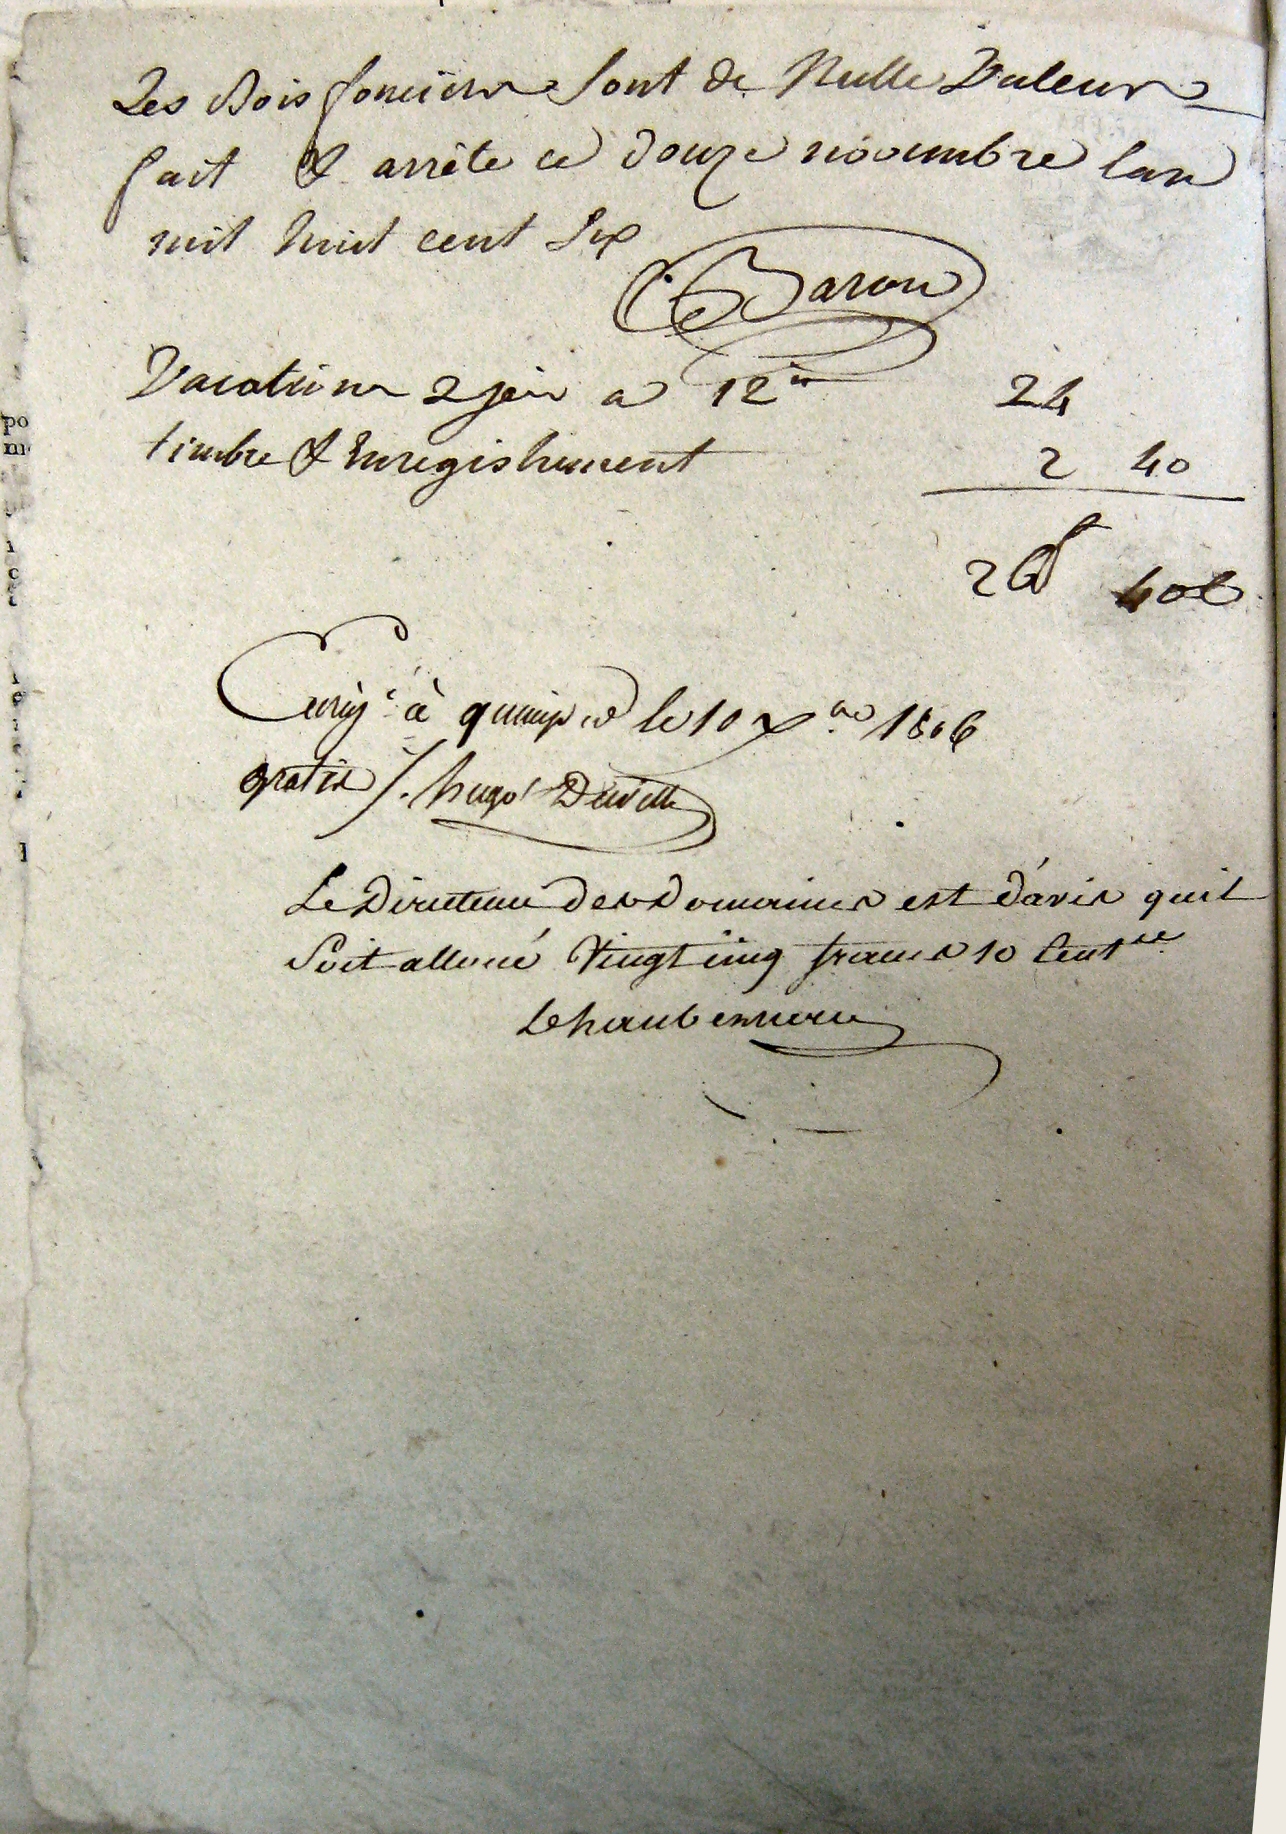 Les Bois fonciers Sont de Nulle Valeur
fait & arrêté ce douze novembre lan
mil huit cent Six
Baron
Vacation 2 jrs a 12
24
timbre & Enregistrement
2 40
26f 40c
Enrgé à quimper le 10 Xbre 1806
gratis
Le Directeur des Domaines est d'avis quil
Soit alloué Vingt cinq francs 10 Centmes